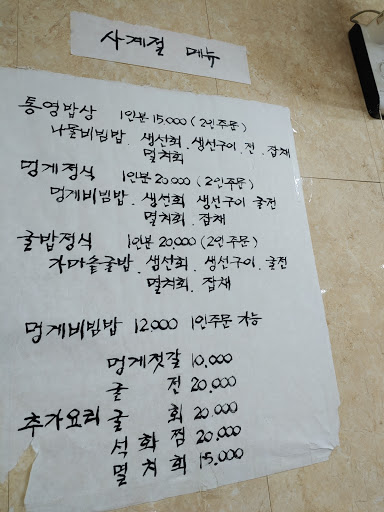 사계절 메뉴
통영밥상 1인분 15,000 (2인주문)
나물비빔밥. 생선회. 생선구이. 전. 잡채
멸치회
멍게정식 1인분 20,000 (2인주문)
멍게비빔밥. 생선회 생선구이 굴전
멸치회. 잡채
굴밥정식 1인분 20,000 (2인주문)
가마솥굴밥. 생선회. 생선구이. 굴전
멸치회. 잡채
멍게비빔밥 12,000 1인주문 가능
멍게젓갈 10,000
굴 전 20,000
추가요리 굴 회 20,000
석화찜 20,000
멸치회 15,000